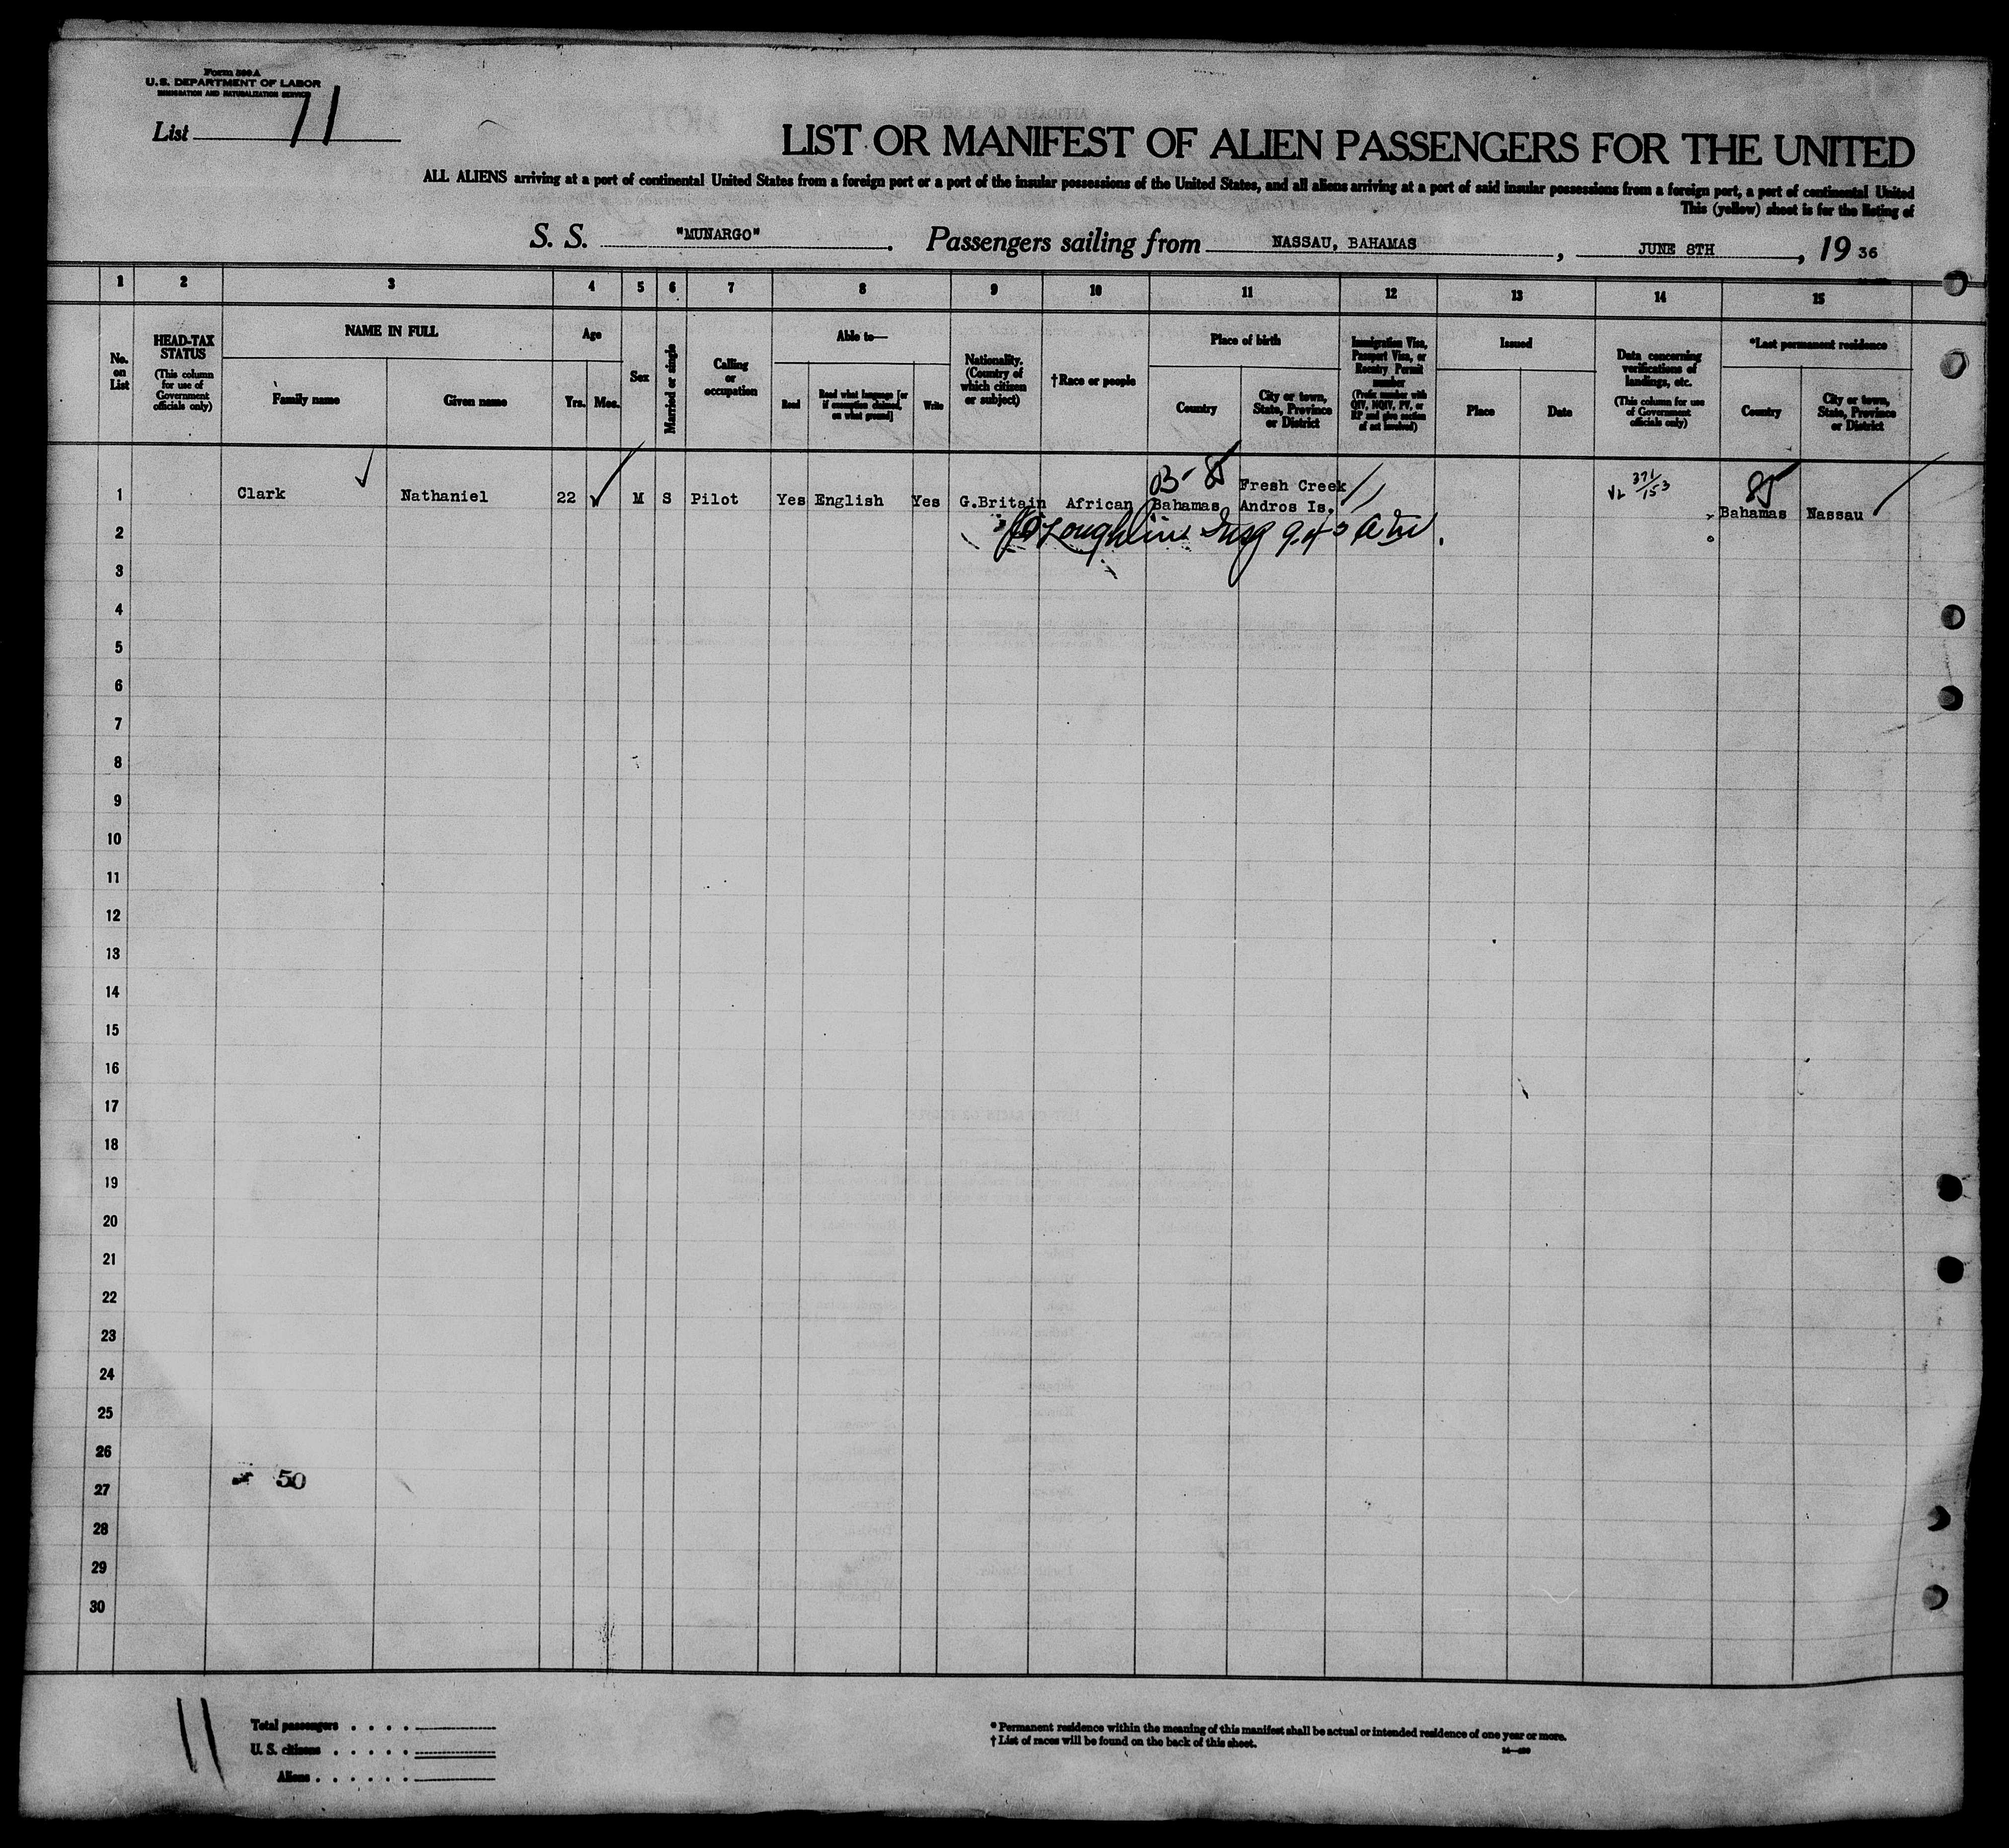 Form 500 A
U. S. DEPARTMENT OF LABOR
IMMIGRATION AND NATURALIZATION SERVICE
List 71
LIST OR MANIFEST OF ALIEN PASSENGERS FOR THE UNITED
ALL ALIENS arriving at a port of continental United States from a foreign port or a port of the insular possessions of the United States, and all aliens arriving at a port of said insular possessions from a foreign port, a port of continental United
This (yellow) sheet is for the listing of
S. S. "MUNARGO". Passengers sailing from NASSAU, BAHAMAS, JUNE 8TH, 19 36
1 2 3 4 5 6 7 8 9 10 11 12 13 14 15
No. on List
HEAD-TAX STATUS
(This column for use of Government officials only)
NAME IN FULL
Family name
Given name
Age
Yrs. Mos.
Sex
Married or single
Calling or occupation
Able to—
Read
Read what language [or if exemption claimed, on what ground]
Write
Nationality. (Country of which citizen or subject)
†Race or people
Place of birth
Country
City or town, State, Province or District
Immigration Visa, Passport Visa, or Reentry Permit number
(Prefix number with QIV, NQIV, PV, or RP and give section of act involved)
Issued
Place
Date
Data concerning verifications of landings, etc.
(This column for use of Government officials only)
*Last permanent residence
Country
City or town, State, Province or District
B- 85
Fresh Creek
371/153
85
1 Clark Nathaniel 22 M S Pilot Yes English Yes G.Britain African Bahamas Andros Is. Bahamas Nassau
2
3
4
5
6
7
8
9
10
11
12
13
14
15
16
17
18
19
20
21
22
23
24
25
26
50
27
28
29
30
11
Total passengers . . . .
U. S. citizens . . . . .
Aliens . . . . . .
* Permanent residence within the meaning of this manifest shall be actual or intended residence of one year or more.
† List of races will be found on the back of this sheet.